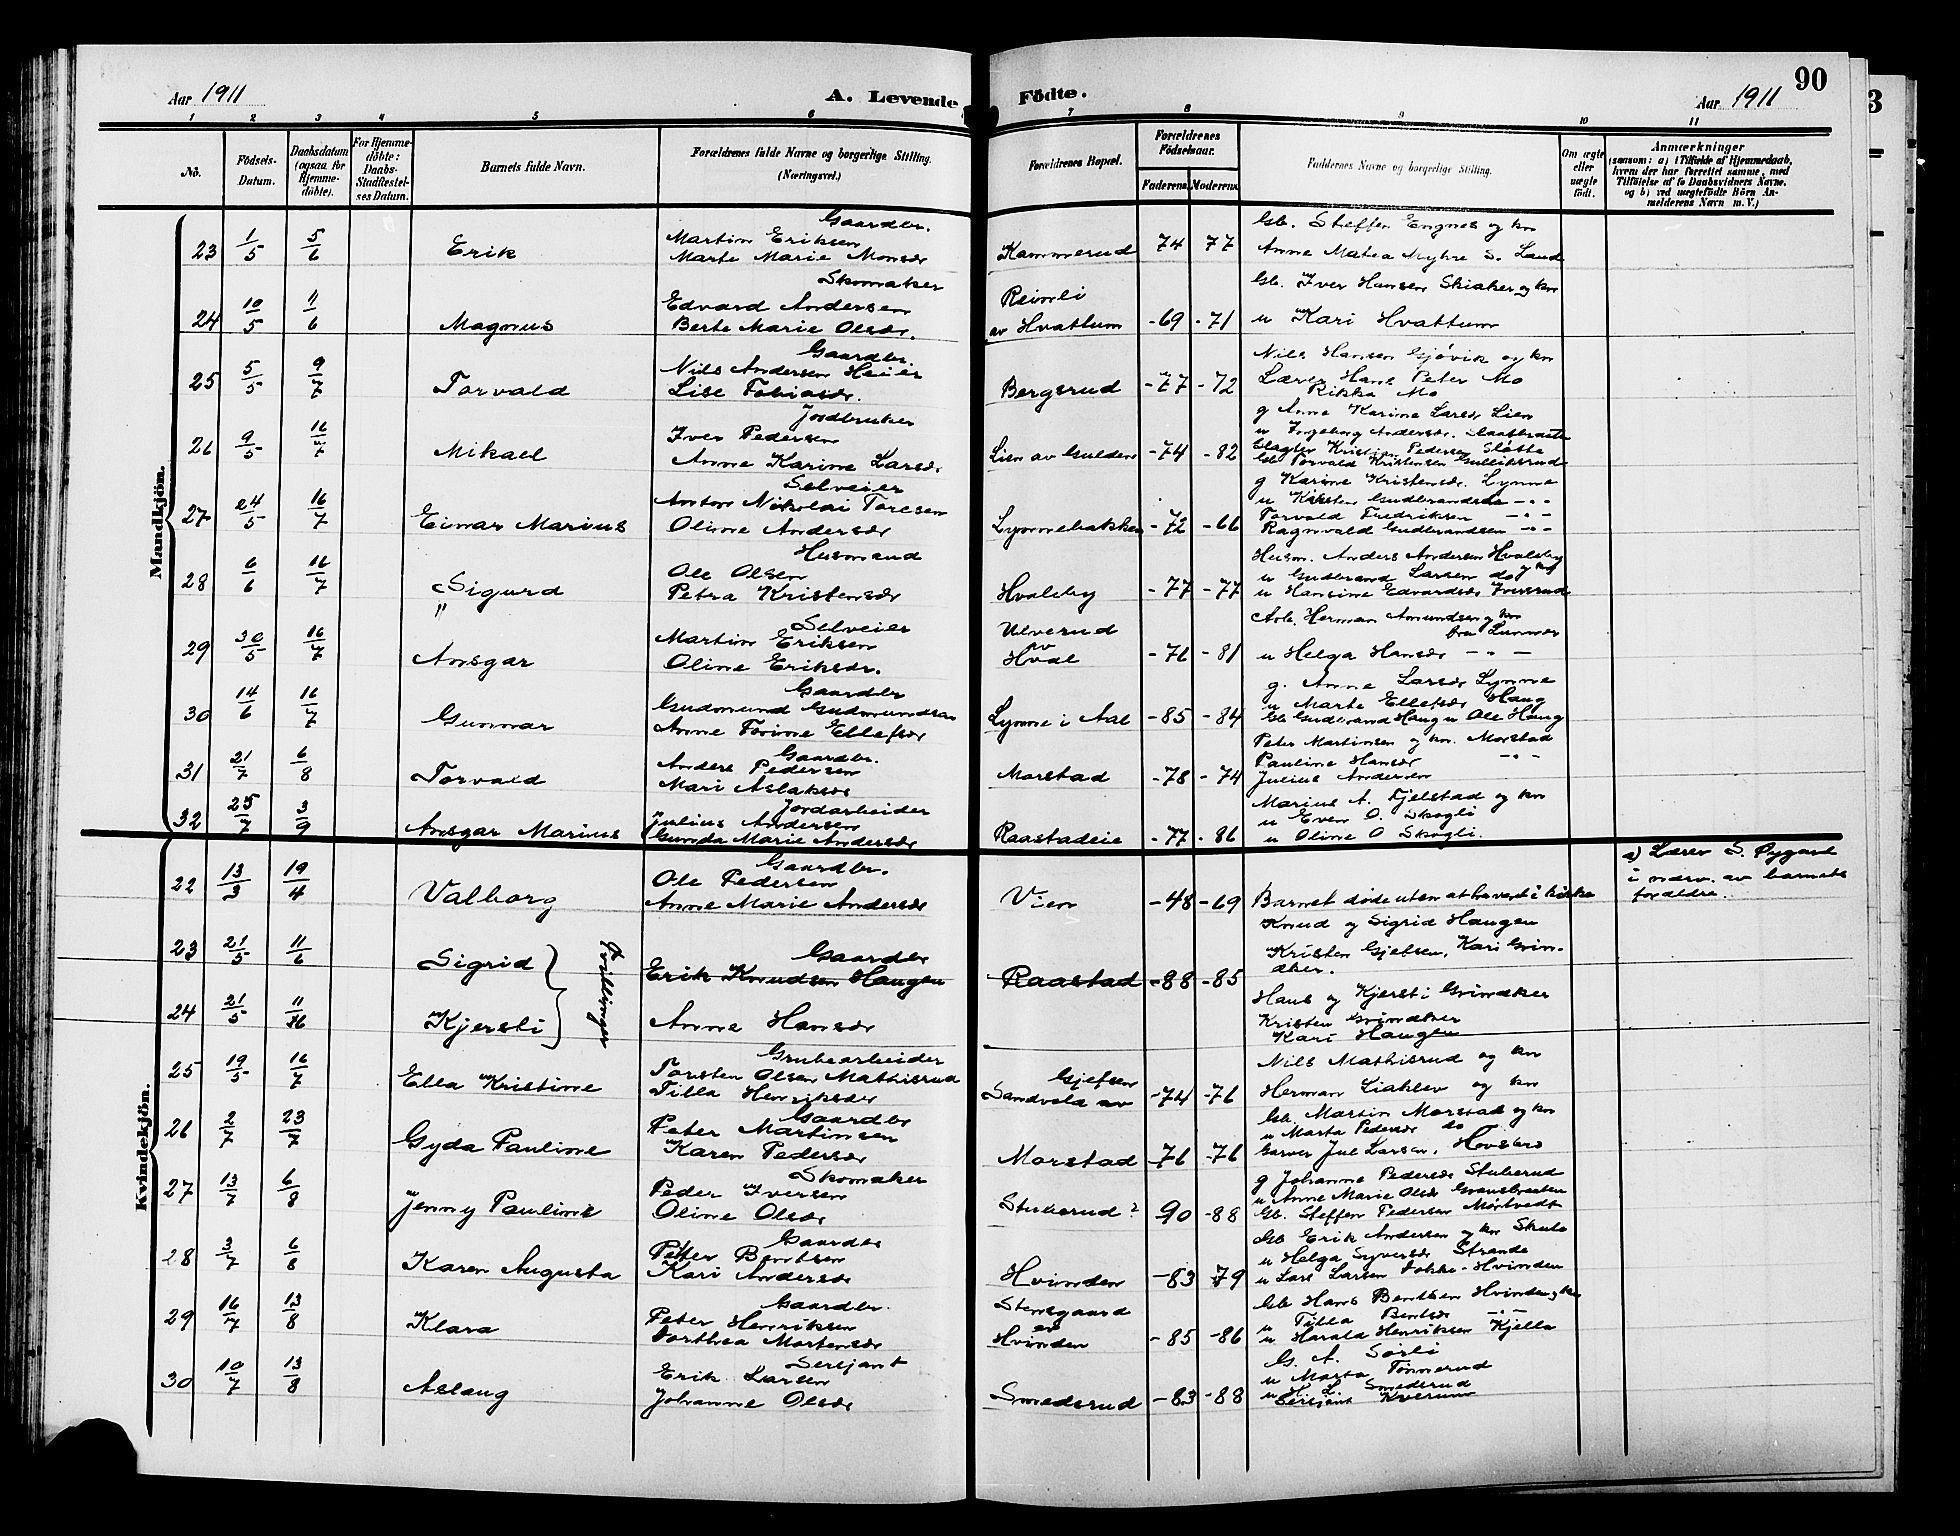 Aar 1911
A. Levende Födte.
Aar 1911
90
3
1 2 3 4 5 6 7 8 9 10 11
No.
Födsels-
Datum.
Daabsdatum
(ogsaa for
Hjemme-
döbte).
For Hjemme-
döbte:
Daabs-
Stadfestel-
ses Datum.
Barnets fulde Navn.
Forældrenes fulde Navne og borgerlige Stilling.
(Næringsvei.)
Forældrenes Bopæl.
Forældrenes
Födselsaar.
Faderens. Moderens.
Faddernes Navne og borgerlige Stilling.
Om ægte
eller
uægte
födt.
Anmærkninger
(saasom: a) i Tilfælde af Hjemmedaab,
hvem der har forrettet samme, med
Tilföielse af to Daabsvidners Navne,
og b) ved uægtefödte Börn An-
melderens Navn m. V.)
Mandkjön.
23 1/5 5/6 Erik
Gaardbr.
Martin Eriksen
Marte Marie Monsdr
Kammerud -74 77
Gb. Steffen Engnes og kn
Anne Matea Myhre S. Land
24 10/5 11/6 Magnus
Skomaker
Edvard Andersen
Berte Marie Olsdr.
Reinli
av Hvattum -69 -71
Gb. Iver Hansen Skiaker og kn
u Kari Hvattum
25 5/5 9/7 Torvald
Gaardbr.
Nils Andersen Heier
Lise Tobiasdr.
Bergsrud -77 -72
Nils Hansen Gjövik og kn
Lærer Hans Peter Mo
Rikka Mo
26 9/5 16/7 Mikael
Jordbruker
Iver Pedersen
Anne Karine Larsdr
Lien av Gulden -74 -82
g Anne Karine Larsdr Lien
u Ingeborg Andersdr.
Slagter Kristian Pedersen Sløtte
Gb Torvald Kristensen Gulliksrud
27 24/5 16/7 Einar Marius
Selveier
Anton Nikolai Toresen
Oline Andersdr
Lynnebakken -72 -66
g Karine Kristensdr. Lynne
u Kirsten Gudbrandsdr - " -
Torvald Fredriksen - " -
Ragnvald Gudbrandsen - " -
28 6/6 16/7 Sigurd
"
Husmand
Ole Olsen
Petra Kristensdr
Hvaleby -77 -77
Husm. Anders Andersen Hvaleby
u Gudbrand Larsen do og kn
u Hansine Edvardsdr
29 30/5 16/7 Ansgar
Selveier
Martin Eriksen
Oline Eriksdr.
Ulverud
av
Hval -76 -81
Arb. Herman Amundsen og kn
fra Lunner
u Helga Hansdr - " -
30 14/6 16/7 Gunnar
Gaardbr
Gudmund Gudmundsen
Anne Torine Ellefsdr
Lynne i Aal -85 -84
g. Anne Larsdr Lynne
u Marte Ellefsdr Haug
Gb Gudbrand Haug u Ole Haug
31 21/7 6/8 Torvald
Gaardbr.
Anders Pedersen
Mari Aslaksdr
Morstad -78 -74
Peter Martinsen og kn. Morstad
Pauline Hansdr - " -
Julius Andersen
32 25/7 3/9 Ansgar Marius
Jordarbeider
Julius Andersen
Gunda Marie Andersdr
Raastadeie -77 -86
Marius A. Fjelstad og kn
u Even O. Skogli
u Oline O Skogli.
Kvindekjön.
22 13/3 19/4 Valborg
Gaardbr.
Ole Pedersen
Anne Marie Andersdr
Vien -48 -69
Barnet døde uten at ha været i kirke
a) Lærer S. Øygard
i nærv. av barnets
forældre.
23 21/5 11/6 Sigrid
Tvillinger
Gaardbr
Erik Knudsen Haugen
Raastad -88 -85
Knud og Sigrid Haugen
Kristen Gjefsen, Kari Grin-
aker.
24 21/5 11/6 Kjersti
Anne Hansdr
Hans og Kjersti Grinaker
Kristen Grinaker
Kari Haugen
25 19/5 16/7 Ella Kristine
Grubearbeider
Torsten Olsen Mathisrud
Tilla Henriksdr
Gjefsen
Sandvold av -74 -76
Nils Mathisrud og kn
Herman Liaklev og kn
26 2/7 23/7 Gyda Pauline
Gaardbr
Peter Martinsen
Karen Pedersdr
Morstad -76 -76
Gb. Martin Morstad og kn
u Marta Pedersdr do
Garver Jul Larsen, Hovsbro
27 13/7 6/8 Jenny Pauline
Skomaker
Peder Iversen
Oline Olsdr
Stuberud? -90 -88
g Johanne Pedersdr Stuberud
u Anne Marie Olsdr
Gb. Steffen Pedersen Mörtvedt
28 3/7 6/8 Karen Augusta
Gaardbr
Petter Bentsen
Kari Andersdr
Hvinden -83 -79
Gb Erik Andersen og kn
u Helga Syversdr Strande
u Lars Larsen Dokke-Hvinden
29 16/7 13/8 Klara
Gaardbr.
Peter Henriksen
Dorthea Mortensdr
Stensgaard
av
Hvinden -85 -86
Gb Hans Bentsen Hvinden og kn
u Tilla Bentsdr - " -
u Harald Henriksen Kjella
30 10/7 13/8 Aslaug
Sersjant
Erik Larsen
Johanne Olsdr
Smedsrud -83 -88
G. A. Sörli
u Marta Tönnerud
u H. L. Smedsrud
Sersjant Kværum